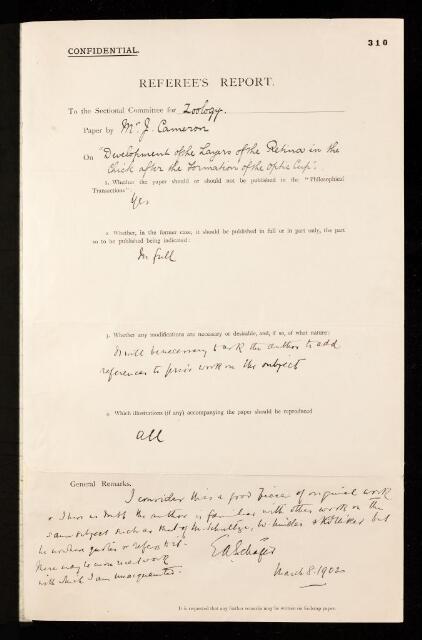 CONFIDENTIAL.
310
REFEREE'S REPORT.
To the Sectional Committee for Zoology.
Paper by Mr J. Cameron
On "Development of the Layers of the Retina in the
Chick after the Formation of the Optic Cup".
1. Whether the paper should or should not be published in the "Philosophical
Transactions":
Yes
2. Whether, in the former case, it should be published in full or in part only, the part
so to be published being indicated:
In full
3. Whether any modifications are necessary or desirable, and, if so, of what nature:
It will be necessary to ask the author to add
references to previous work on the subject
4. Which illustrations (if any) accompanying the paper should be reproduced
all
General Remarks.
I consider this is a good piece of original work
& I have no doubt the author is familiar with other work on the
same subject such as that of M. Schultze, W. Müller & Kölliker but
he nowhere quotes or refers to it.
There may be more recent work
with which I am unacquainted.
E A Schäfer
March 8. 1902
It is requested that any further remarks may be written on foolscap paper.